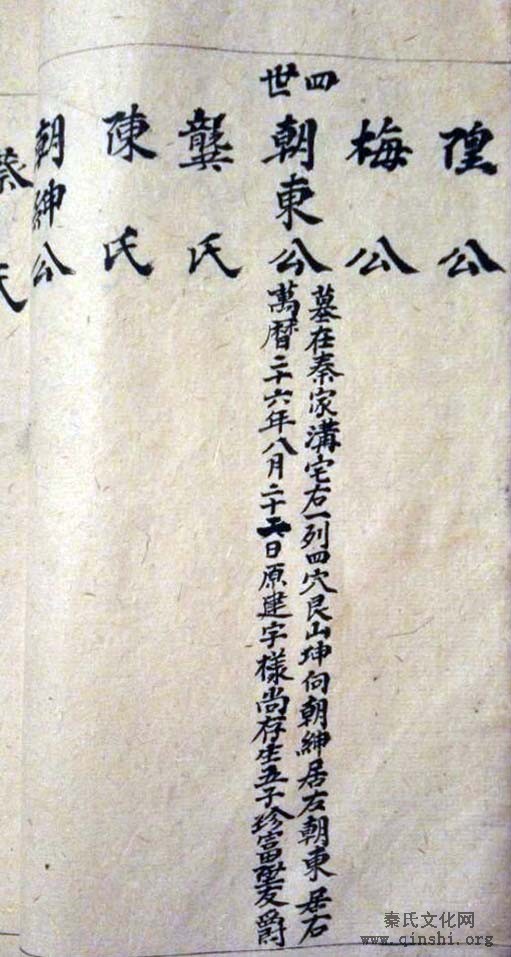 隍公
梅公
四世
朝東公
墓在秦家溝宅右一列四穴艮山坤向朝紳居左朝東居右
萬曆二十六年八月二十 日原建字樣尚存生五子珍富 友爵
龔氏
陳氏
朝紳公
蔡氏
秦氏文化网
www.qinshi.org